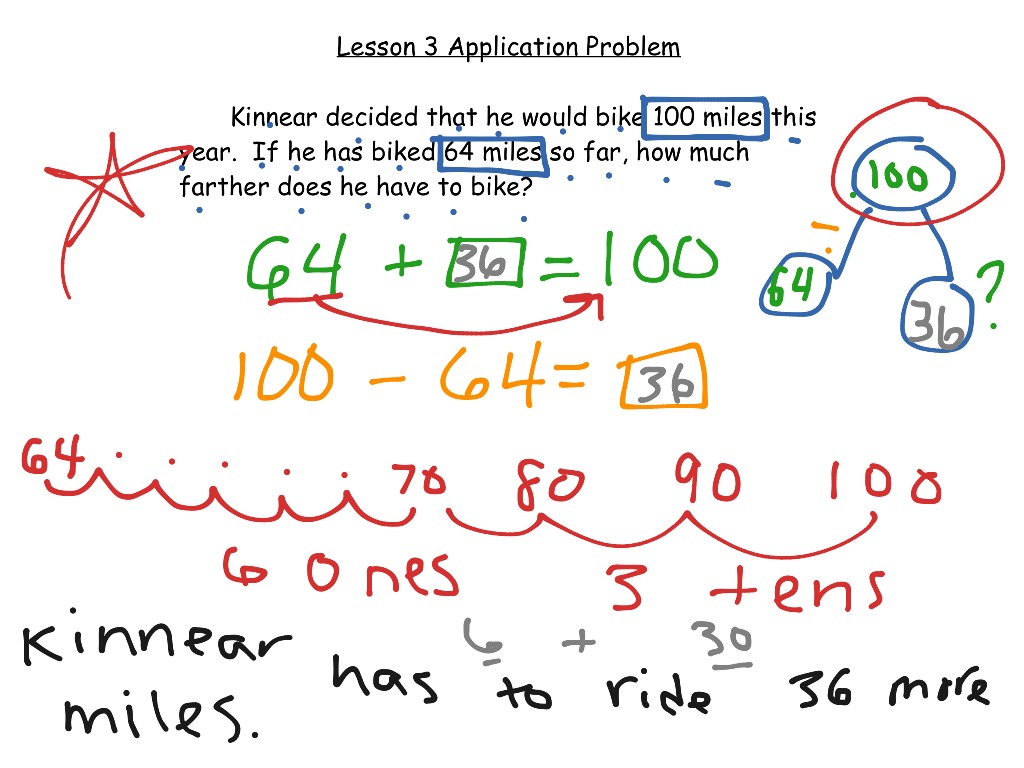 Lesson 3 Application Problem
Kinnear decided that he would bike 100 miles this
year. If he has biked 64 miles so far, how much
farther does he have to bike?
100
64 + 36 = 100
64 36 ?
100 - 64 = 36
64 70 80 90 100
6 ones 3 tens
6 + 30
Kinnear has to ride 36 more
miles.